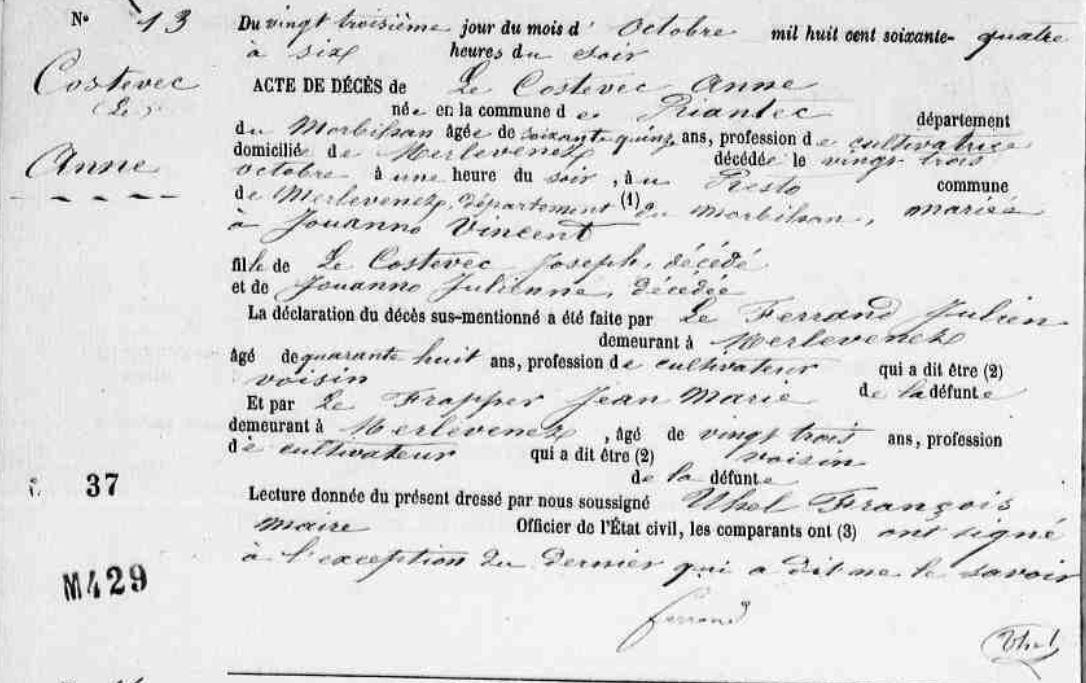 N° 13
Du vingt troisième jour du mois d' Octobre mil huit cent soixante- quatre
à six heures du soir
Costevec
(Le)
Anne
ACTE DE DÉCÈS de Le Costevec Anne
née en la commune de Riantec département
du Morbihan âgée de soixante quinze ans, profession de cultivatrice
domiciliée de Merlevenez décédée le vingt trois
octobre à une heure du soir, à commune
de Merlevenez, département (1) du Morbihan, mariée
à Jouanno Vincent
fille de Le Costevec Joseph, décédé
et de Jouanno Julienne, décédée
La déclaration du décès sus-mentionné a été faite par Le Ferrand Julien
demeurant à Merlevenez
âgé de quarante huit ans, profession de cultivateur qui a dit être (2)
voisin de la défunte
Et par Le Frapper Jean Marie
demeurant à Merlevenez, âgé de vingt trois ans, profession
de cultivateur qui a dit être (2) voisin
de la défunte
37
Lecture donnée du présent dressé par nous soussigné Uhel François
maire Officier de l'État civil, les comparants ont (3) ont signé
à l'exception du dernier qui a dit ne le savoir
M429
ferrand
Uhel